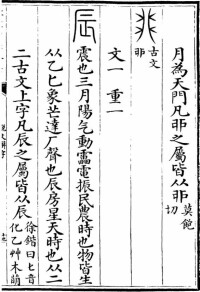 月為天門凡卯之屬皆从卯莫飽切
古文卯
文一 重一
辰震也三月陽气動靁電振民農時也物皆生
从乙匕象芒達厂聲也辰房星天時也从二
二古文上字凡辰之屬皆从辰徐鍇曰匕音化乙艸木萌